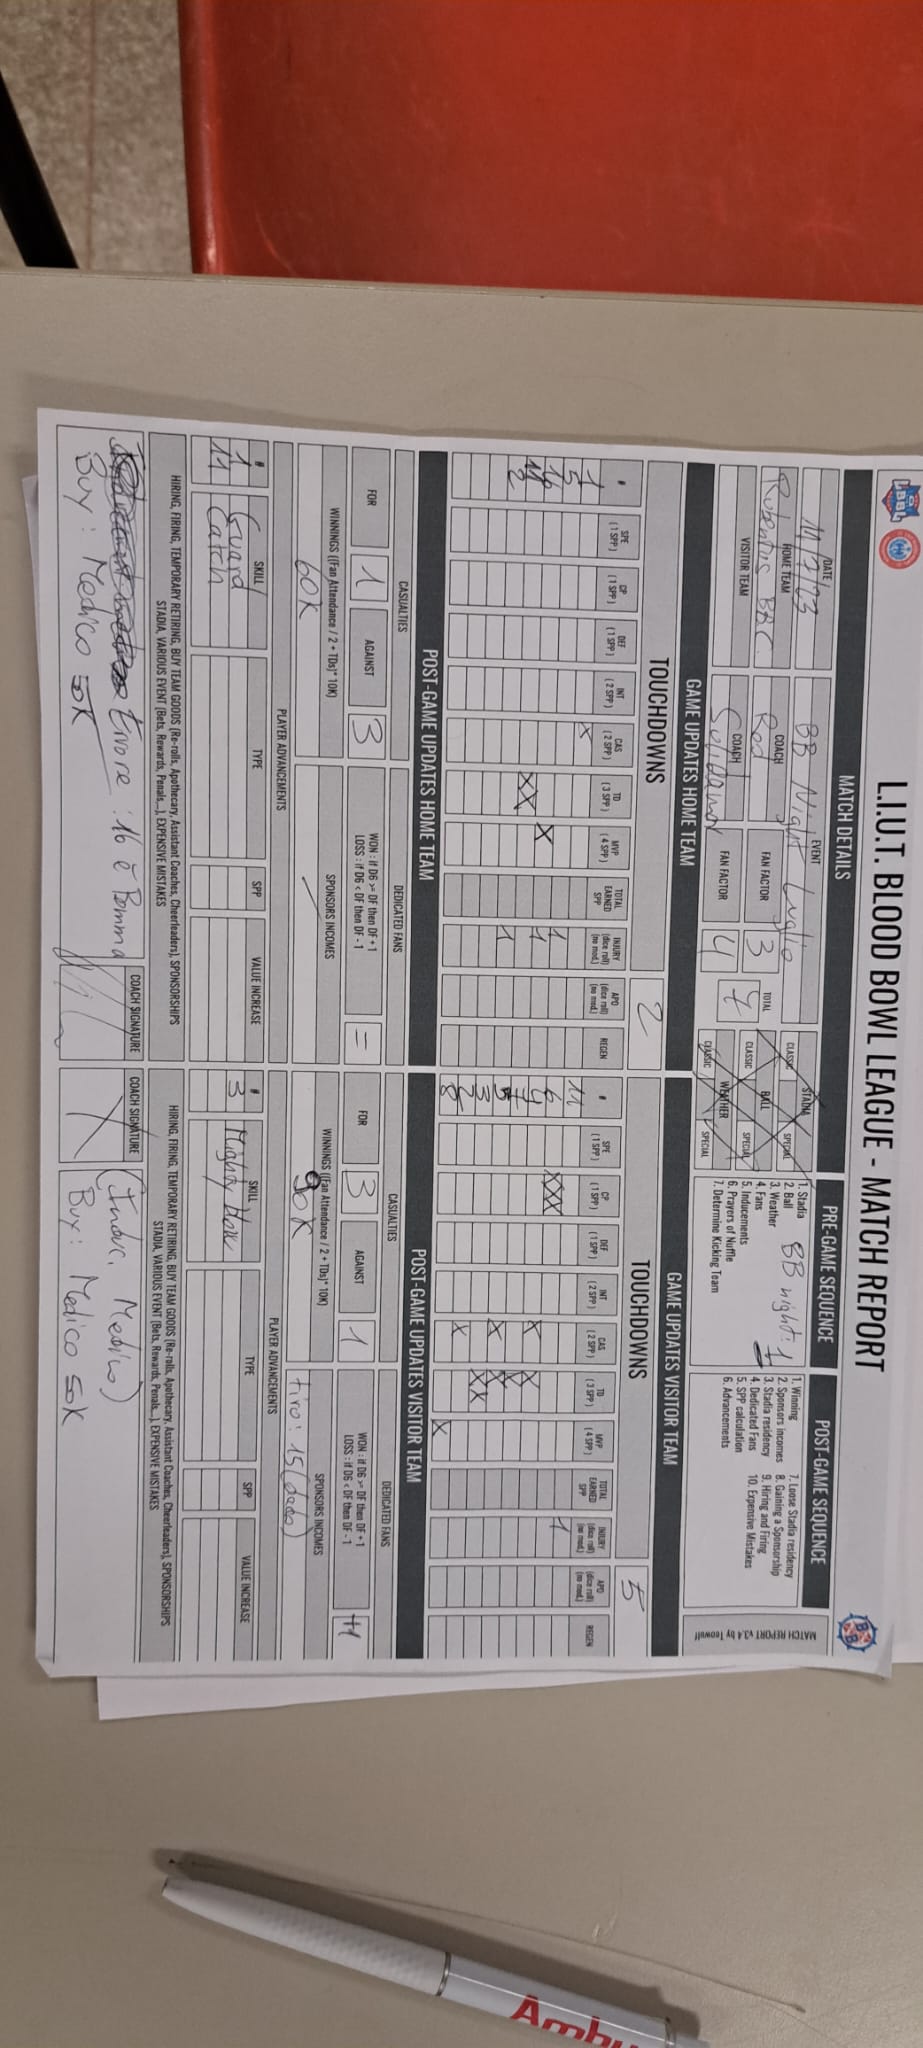 L.I.U.T. BLOOD BOWL LEAGUE - MATCH REPORT
MATCH DETAILS
DATE
11/7/23
EVENT
BB Night Luglio
HOME TEAM
BBC
COACH
Red
FAN FACTOR
3
VISITOR TEAM
COACH
FAN FACTOR
4
TOTAL
7
STADIA
CLASSIC
SPECIAL
BALL
CLASSIC
SPECIAL
WEATHER
CLASSIC
SPECIAL
PRE-GAME SEQUENCE
1. Stadia
2. Ball
3. Weather
4. Fans
5. Inducements
6. Prayers of Nuffle
7. Determine Kicking Team
BB night: 1
POST-GAME SEQUENCE
1. Winning
2. Sponsors incomes
3. Stadia residency
4. Dedicated Fans
5. SPP calculation
6. Advancements
7. Loose Stadia residency
8. Gaining a Sponsorship
9. Hiring and Firing
10. Expensive Mistakes
MATCH REPORT v3.4 by Teowulf
GAME UPDATES HOME TEAM
TOUCHDOWNS
2
# SPE (1 SPP) CP (1 SPP) DEF (1 SPP) INT (2 SPP) CAS (2 SPP) TD (3 SPP) MVP (4 SPP) TOTAL EARNED SPP INJURY (dice roll) (no mod.) APO (dice roll) (no mod.) REGEN
1
5 X 1
X 1
11 XX
2 1
GAME UPDATES VISITOR TEAM
TOUCHDOWNS
5
# SPE (1 SPP) CP (1 SPP) DEF (1 SPP) INT (2 SPP) CAS (2 SPP) TD (3 SPP) MVP (4 SPP) TOTAL EARNED SPP INJURY (dice roll) (no mod.) APO (dice roll) (no mod.) REGEN
11
6 XXX 1
4 X X
X
3 X XX
X
8 X
POST-GAME UPDATES HOME TEAM
CASUALTIES
FOR
1
AGAINST
3
DEDICATED FANS
WON : if D6 >= DF then DF +1
LOSS : if D6 < DF then DF -1
=
WINNINGS ((Fan Attendance / 2 + TDs)* 10K)
60K
SPONSORS INCOMES
PLAYER ADVANCEMENTS
# SKILL TYPE SPP VALUE INCREASE
1 Guard
11 Catch
HIRING, FIRING, TEMPORARY RETIRING, BUY TEAM GOODS (Re-rolls, Apothecary, Assistant Coaches, Cheerleaders), SPONSORSHIPS
STADIA, VARIOUS EVENT (Bets, Rewards, Penals...), EXPENSIVE MISTAKES
: 16 è Bomma
Buy: Medico 50K
COACH SIGNATURE
POST-GAME UPDATES VISITOR TEAM
CASUALTIES
FOR
3
AGAINST
1
DEDICATED FANS
WON : if D6 >= DF then DF +1
LOSS : if D6 < DF then DF -1
+1
WINNINGS ((Fan Attendance / 2 + TDs)* 10K)
90K
SPONSORS INCOMES
tiro: 15 (dado)
PLAYER ADVANCEMENTS
# SKILL TYPE SPP VALUE INCREASE
3 Mighty
HIRING, FIRING, TEMPORARY RETIRING, BUY TEAM GOODS (Re-rolls, Apothecary, Assistant Coaches, Cheerleaders), SPONSORSHIPS
STADIA, VARIOUS EVENT (Bets, Rewards, Penals...), EXPENSIVE MISTAKES
COACH SIGNATURE
Medico)
Buy: Medico 50K
Ambu